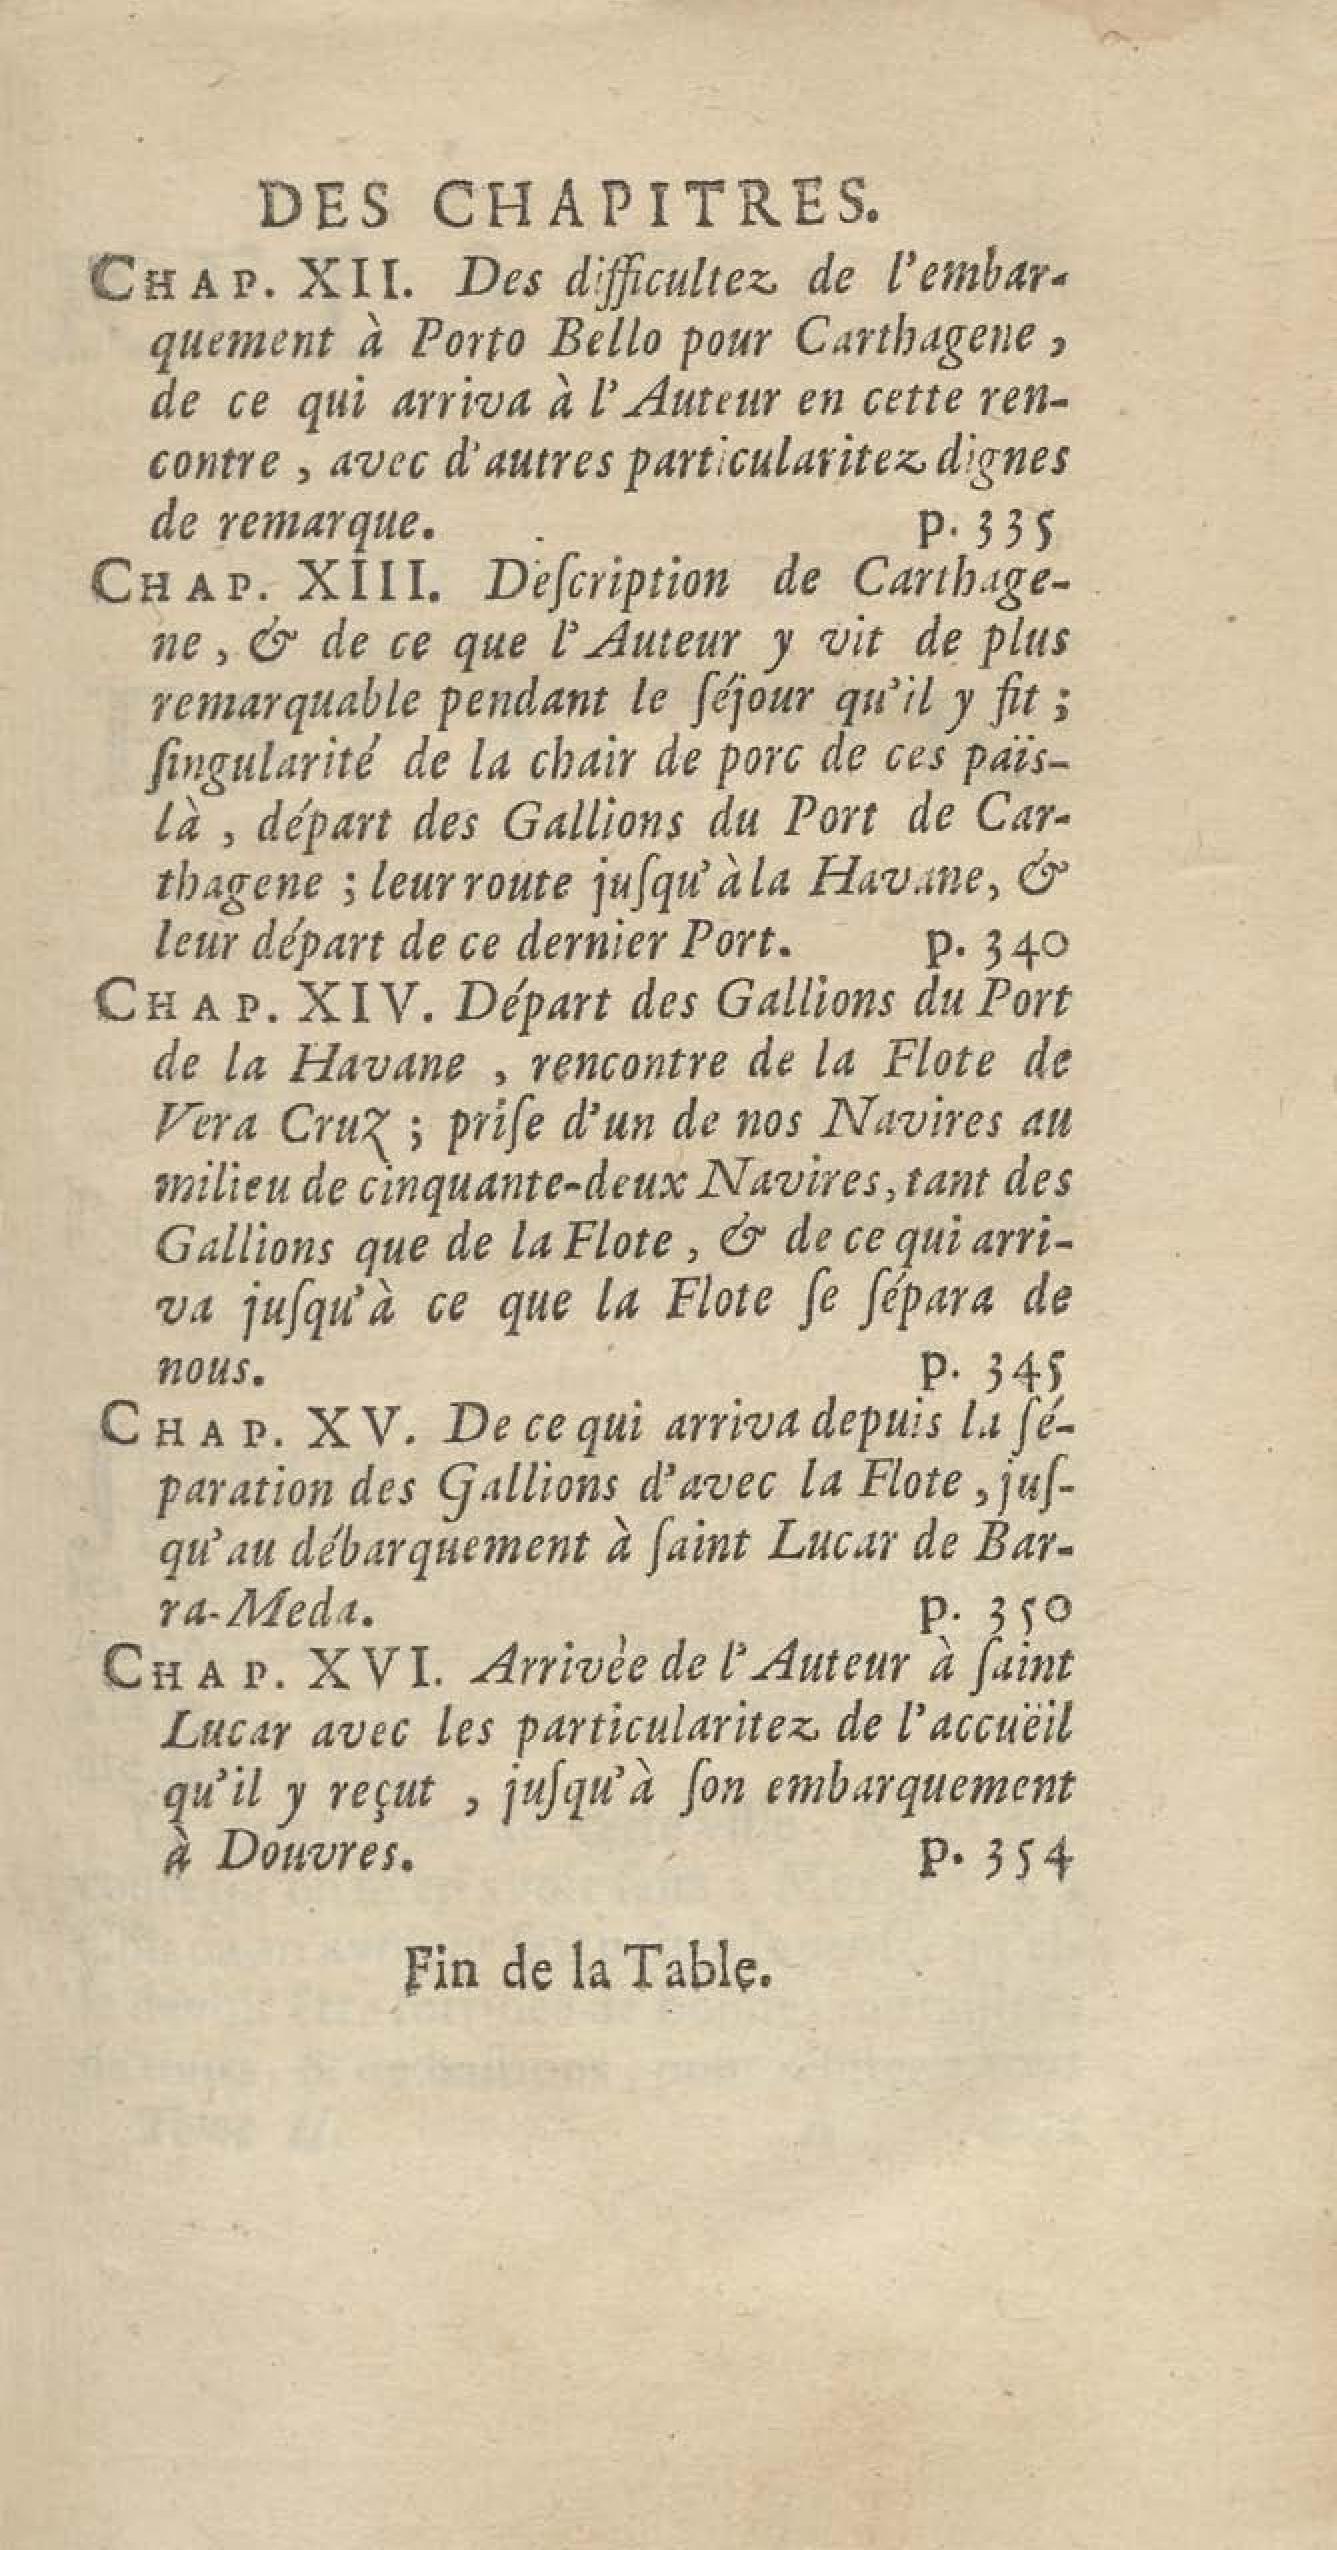 DES CHAPITRES.
CHAP. XII. Des difficultez de l'embar-
quement à Porto Bello pour Carthagene,
de ce qui arriva à l'Auteur en cette ren-
contre, avec d'autres particularitez dignes
de remarque. p. 335
CHAP. XIII. Deſcription de Carthage-
ne, & de ce que l'Auteur y vit de plus
remarquable pendant le ſéjour qu'il y fit;
ſingularité de la chair de porc de ces païs-
là, départ des Gallions du Port de Car-
thagene; leur route juſqu'à la Havane, &
leur départ de ce dernier Port. p. 340
CHAP. XIV. Départ des Gallions du Port
de la Havane, rencontre de la Flote de
Vera Cruz; priſe d'un de nos Navires au
milieu de cinquante-deux Navires, tant des
Gallions que de la Flote, & de ce qui arri-
va juſqu'à ce que la Flote ſe ſépara de
nous. p. 345
CHAP. XV. De ce qui arriva depuis la ſé-
paration des Gallions d'avec la Flote, juſ-
qu'au débarquement à ſaint Lucar de Bar-
ra-Meda. p. 350
CHAP. XVI. Arrivèe de l'Auteur à ſaint
Lucar avec les particularitez de l'accuëil
qu'il y reçut, juſqu'à ſon embarquement
à Douvres. p. 354
Fin de la Table.